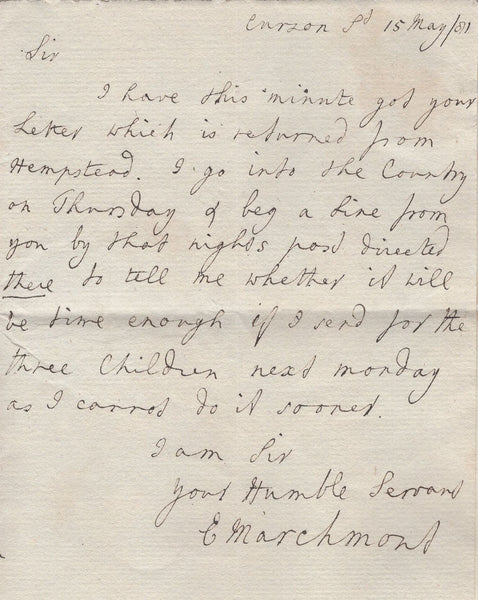 Curzon St 15 May/81
Sir
I have this minute got your
Letter which is returned from
Hempstead. I go into the Country
on Thursday & beg a Line from
you by that nights post directed
there to tell me whether it will
be time enough if I send for the
three Children next monday
as I cannot do it sooner.
I am Sir
your Humble Servant
E Marchmont